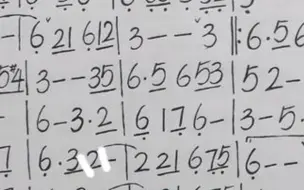 - | 6 21 612 | 3 - - 3 |: 6·56
54 | 3 - - 35 | 6·5 653 | 5 2 -
- | 6 - 3·2 | 6 176 - | 3 - 5 -
7 | 6·32 - | 2 21 675 | 6 - -